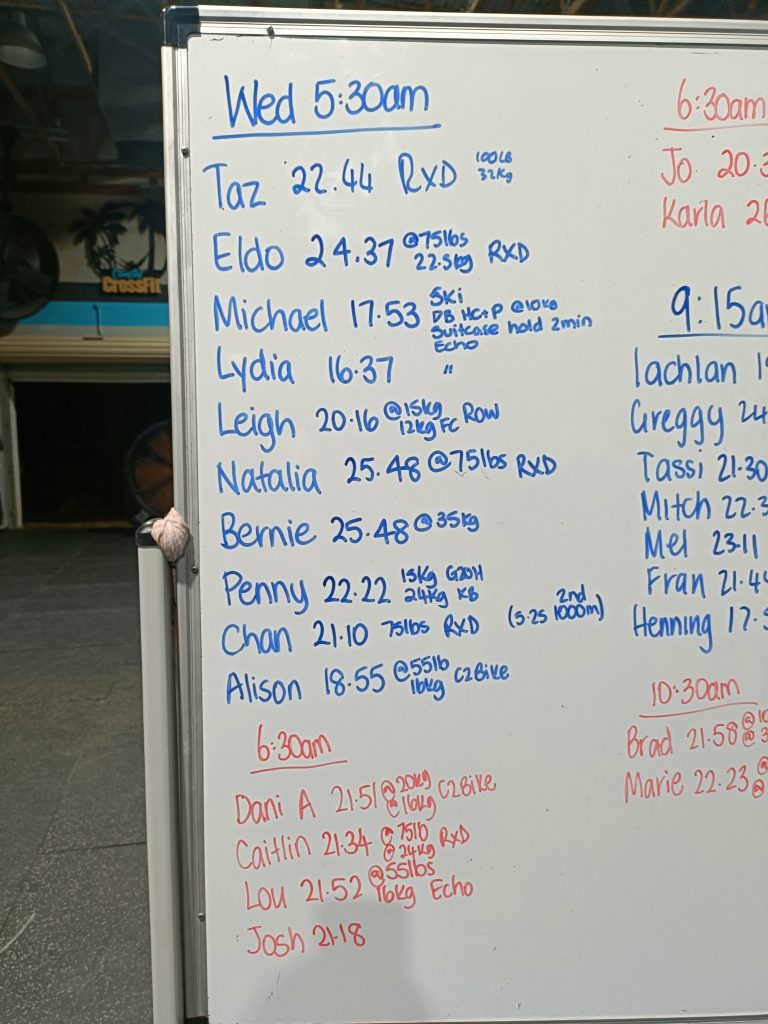 Wed 5:30am
Taz 22.44 RXD 100LB
32kg
Eldo 24.37 @75lbs
22.5kg RXD
Michael 17.53 Ski
DB HC+P @10kg
Suitcase hold 2min
Echo
Lydia 16.37 "
Leigh 20.16 @15kg
12kg FC Row
Natalia 25.48 @75lbs RXD
Bernie 25.48 @35kg
Penny 22.22 15kg G2OH
24kg KB
Chan 21.10 75lbs RXD (5.25 1000m) 2nd
Alison 18.55 @55lb
16kg C2Bike
6:30am
Dani A 21.51 @20kg
@16kg C2Bike
Caitlin 21.34 @75lb
@24kg RXD
Lou 21.52 @55lbs
16kg Echo
Josh 21.18
6:30am
Jo 20.3
Karla 26
9:15a
lachlan 1
Greggy 24
Tassi 21.30
Mitch 22.3
Mel 23.11
Fran 21.4
Henning 17.
10:30am
Brad 21.58 @10
@3
Marie 22.23 @
@
CrossFit